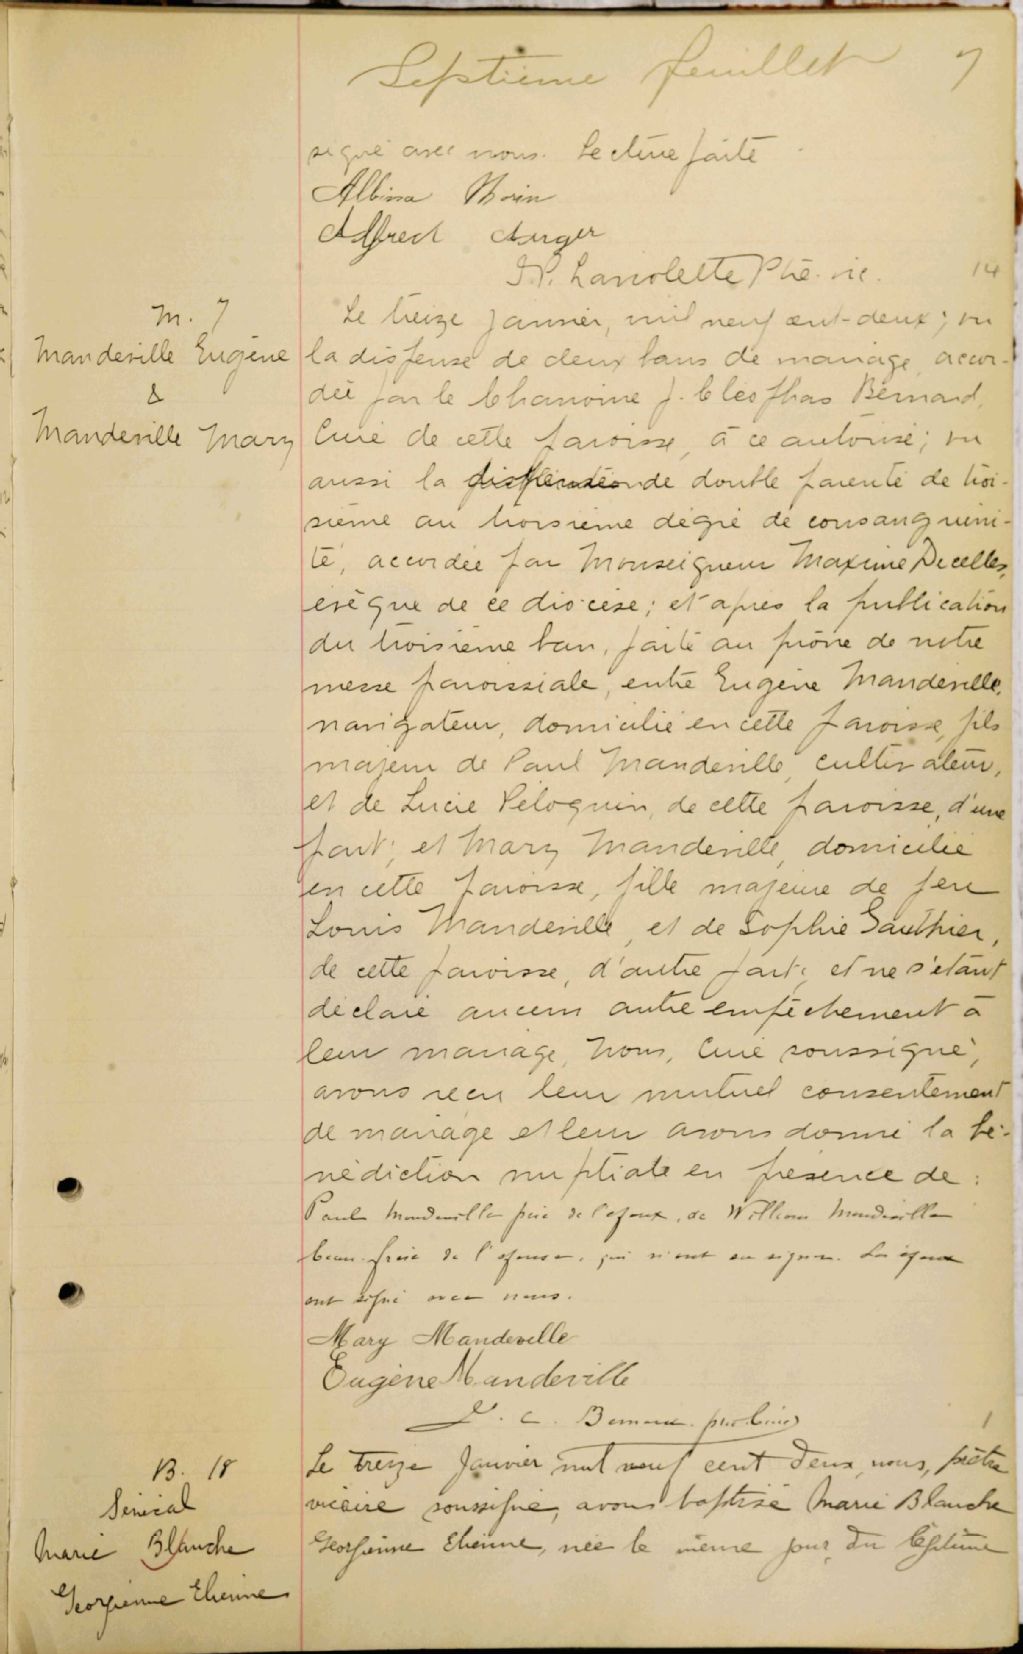 Septième feuillet 7
signé avec nous. Lecture faite
Albina Morin
Alfred Auger
Laviolette Ptre. vic.
14
M. 7
Mandeville Eugène
&
Mandeville Mary
Le treize Janvier, mil neuf cent-deux; vu
la dispense de deux bans de mariage, accor-
dée par le Chanoine J. Cléophas Bernard,
Curé de cette paroisse, à ce autorisé; vu
aussi la dispense de double parenté de troi-
sième au troisième degré de consanguini-
té, accordée par Monseigneur Maxime Decelles,
évêque de ce diocèse; et après la publication
du troisième ban, faite au prône de notre
messe paroissiale, entre Eugène Mandeville,
navigateur, domicilié en cette paroisse, fils
majeur de Paul Mandeville, cultivateur,
et de Lucie Péloquin, de cette paroisse, d'une
part; et Mary Mandeville, domicilié
en cette paroisse, fille majeure de feu
Louis Mandeville, et de Sophie Gauthier,
de cette paroisse, d'autre part; et ne s'étant
déclaré aucun autre empêchement à
leur mariage, Nous, Curé soussigné,
avons reçu leur mutuel consentement
de mariage et leur avons donné la bé-
nédiction nuptiale en présence de:
Paul Mandeville père de l'époux, de William Mandeville
beau-frère de l'épouse, qui n'ont su signer. Les époux
ont signé avec nous.
Mary Mandeville
Eugène Mandeville
J. C. Bernard. ptre Curé
1
B. 18
Sénécal
Marie Blanche
Georgienne Etienne
Le treize Janvier mil neuf cent deux, nous, prêtre
vicaire soussigné, avons baptisé Marie Blanche
Georgienne Etienne, née le même jour, du légitime